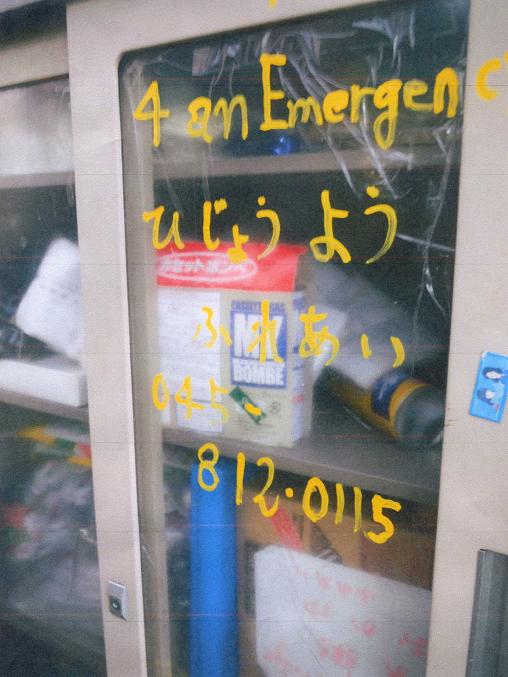 4 an Emergenc
ひじょう よう
カセットボンベ
ふれあい
CASSETTE GAS
NK
BOMBE
045-
812-0115